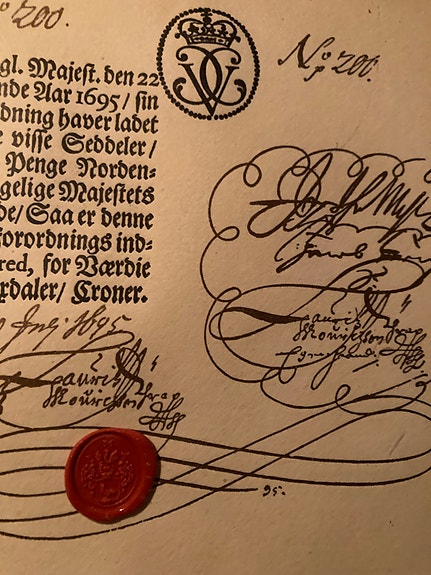 200.
No 200.
gl. Majest. den 22
nde Aar 1695/ sin
dning haver ladet
e visse Seddeler/
Penge Norden-
gelige Majestets
de/ Saa er denne
forordnings ind-
red, for Værdie
xdaler/ Croner.
Jacob
1695
Lauritz
Mouritzen
Lauritz
Mouritzen
egenhend.
95.